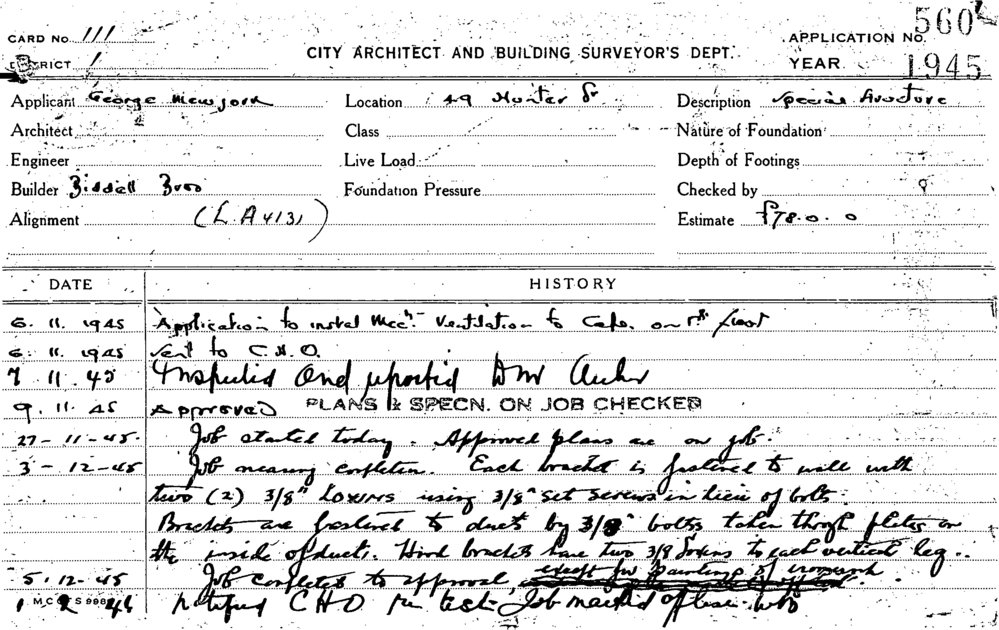 CARD No 111
CITY ARCHITECT AND BUILDING SURVEYOR'S DEPT.
APPLICATION No. 560
DISTRICT 1
YEAR 1945
Applicant George Location 49 Hunter St Description Special Structure
Architect Class Nature of Foundation
Engineer Live Load Depth of Footings
Builder Foundation Pressure Checked by
Alignment (L.A 4131) Estimate £78.0.0
DATE HISTORY
6. 11. 1945 Application to instal Mech. Ventilation to Cafe. on floor
6. 11. 1945 Sent to C.H.O.
7 11. 45 Inspected and reported
9. 11. 45 Approved PLANS & SPECN. ON JOB CHECKED
27-11-45. Job started today. Approved plans are on job.
3-12-45 Job nearing completion. Each bracket is fastened to wall with
two (2) 3/8" LOXINS using 3/8" set screws in lieu of bolts.
Brackets are fastened to ducts by 3/8" bolts taken through plates on
the inside of ducts. brackets have two 3/8 loxins to each vertical leg.
5.12-45 Job completed to approval except for painting of ironwork
notified C H O for test. Job marked off